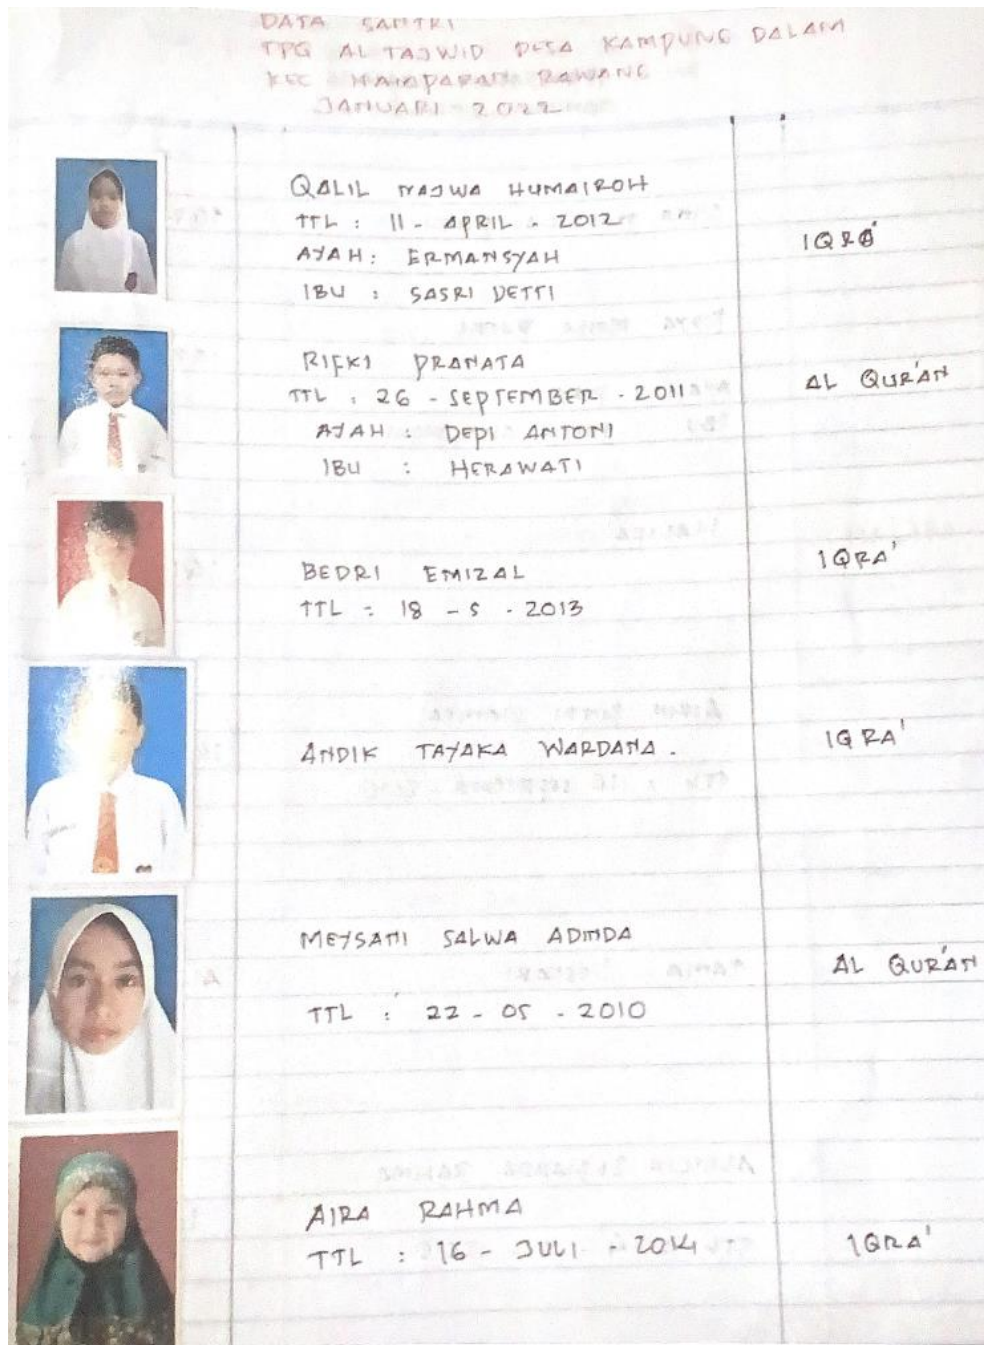 DATA SANTRI
TPQ AL TAJWID DESA KAMPUNG DALAM
KEC RAWANG
JANUARI 2022
QALIL NAJWA HUMAIROH
TTL : 11 - APRIL - 2012
AYAH : ERMANSYAH
IBU : SASRI DETTI
IQRO'
RIFKI PRANATA
TTL : 26 - SEPTEMBER - 2011
AYAH : DEPI ANTONI
IBU : HERAWATI
AL QUR'AN
BEDRI EMIZAL
TTL : 18 - 5 - 2013
IQRA'
ANDIK TAYAKA WARDANA .
IQRA'
MEYSANI SALWA ADINDA
TTL : 22 - 05 - 2010
AL QUR'AN
AIRA RAHMA
TTL : 16 - JULI - 2014
IQRA'